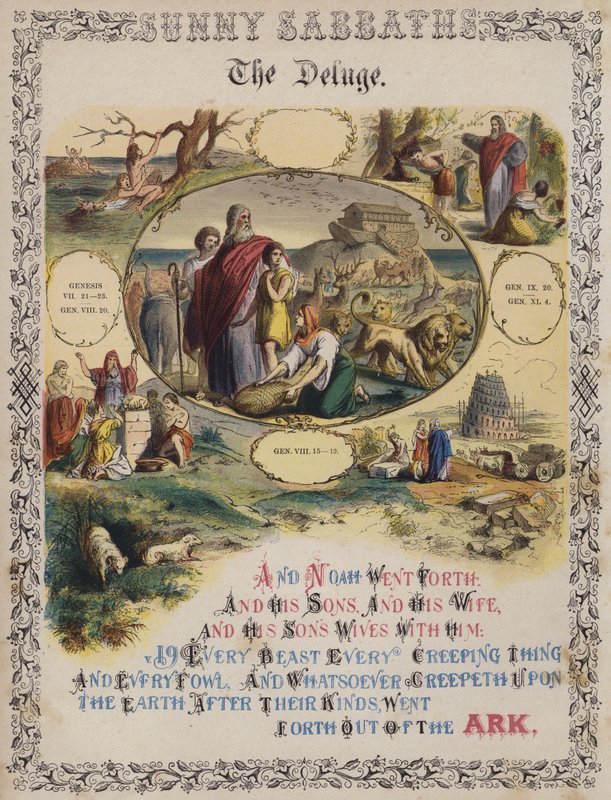 SUNNY SABBATHS
The Deluge.
GENESIS
VII. 21—23.
GEN. VIII. 20.
GEN. IX. 20.
GEN. XI. 4.
GEN. VIII. 15—19.
AND NOAH WENT FORTH:
AND HIS SONS, AND HIS WIFE,
AND HIS SONS WIVES WITH HIM:
v. 19 EVERY BEAST EVERY CREEPING THING
AND EVERY FOWL, AND WHATSOEVER CREEPETH UPON
THE EARTH AFTER THEIR KINDS, WENT
FORTH OUT OF THE ARK.